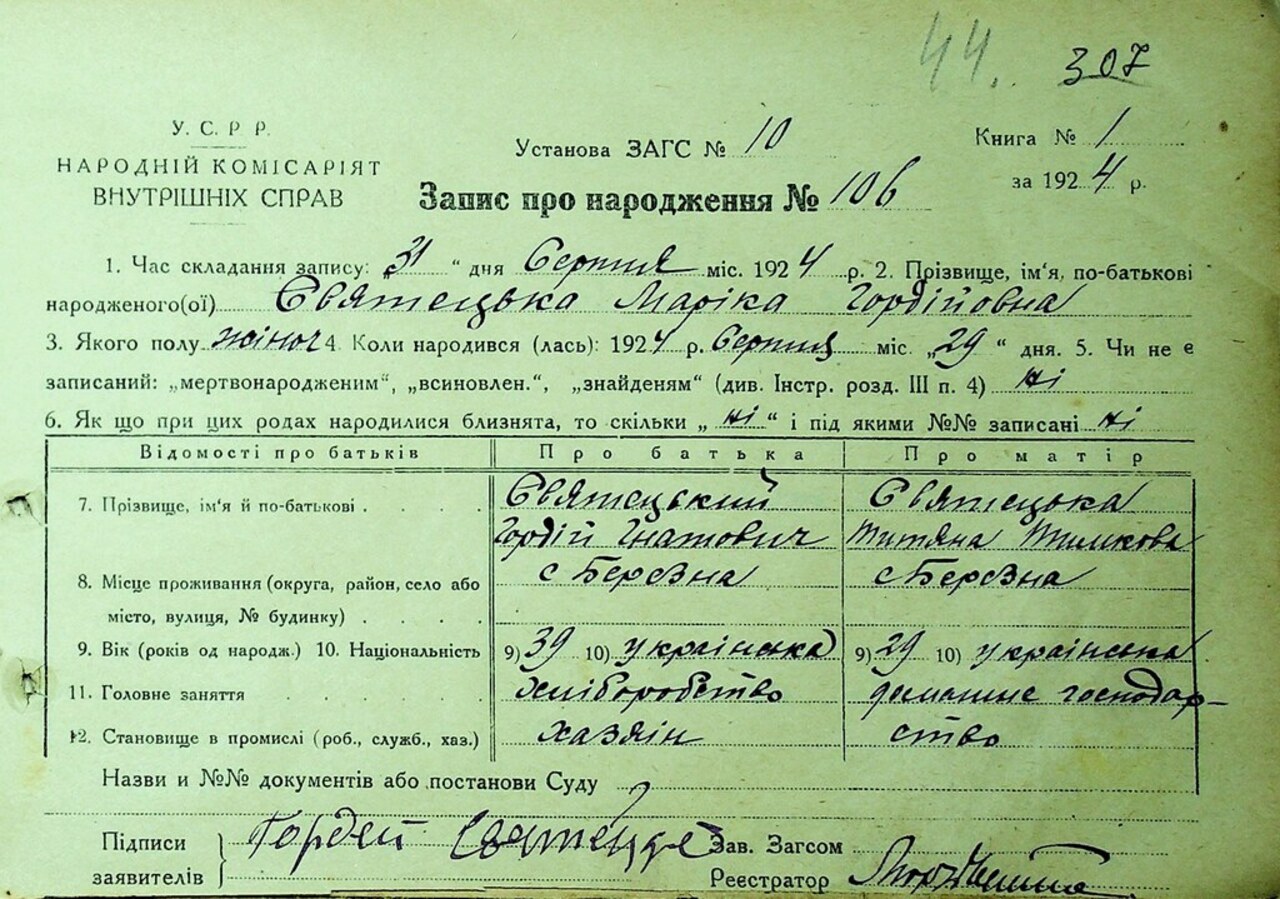 44. 307
У. С. Р Р.
НАРОДНІЙ КОМІСАРІЯТ
ВНУТРІШНІХ СПРАВ
Установа ЗАГС № 10
Книга № 1
за 1924 р.
Запис про народження № 106
1. Час складання запису: „31 “ дня Серпня міс. 1924 р. 2. Прізвище, ім'я, по-батькові
народженого(ої) Святецька Маріка Гордійовна
3. Якого полу жіноч 4. Коли народився (лась): 1924 р. Серпня міс. „29 “ дня. 5. Чи не є
записаний: „мертвонародженим“, „всиновлен.“, „знайденям“ (див. Інстр. розд. III п. 4) ні
6. Як що при цих родах народилися близнята, то скільки „ ні “ і під якими №№ записані ні
Відомості про батьків Про батька Про матір
7. Прізвище, ім'я й по-батькові . . . . Святецький Святецька
Гордій Гнатович Титяна Тимкова
8. Місце проживання (округа, район, село або с Березна с Березна
місто, вулиця, № будинку) . . . .
9. Вік (років од народж.) 10. Національність 9) 39 10) українська 9) 29 10) українська
11. Головне заняття . . . . . хліборобство домашнє господар-
12. Становище в промислі (роб., служб., хаз.) хазяін ство
Назви и №№ документів або постанови Суду
Підписи
заявителів
Гордей
Зав. Загсом
Реєстратор